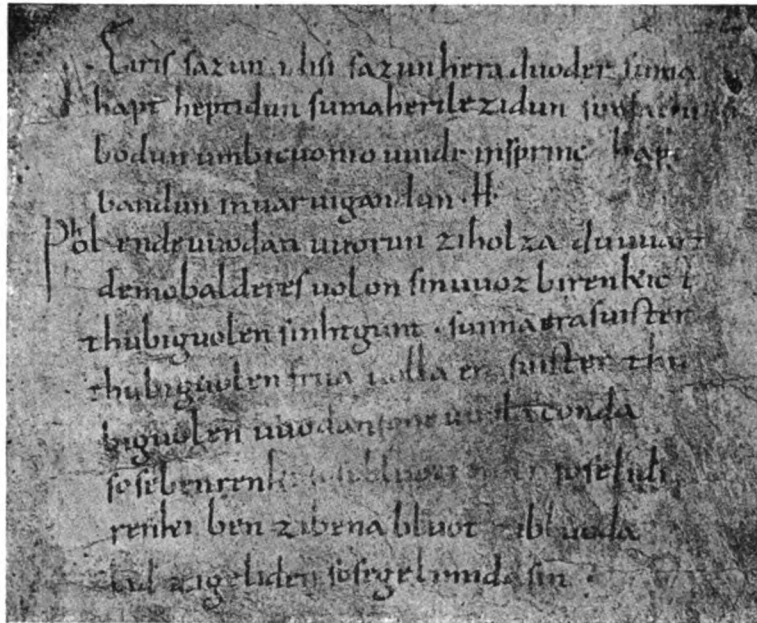 Eiris sazun idisi sazunhera duoder suma
hapt heptidun sumaherilezidun sumaclu
bodun umbicuonio uuidi insprinc hapt
bandun inuar uigandun · H ·
Phol endeuuodan uuorun ziholza du uuart
demobalderes uolon sinuuoz birenkict
thubiguolen sinhtgunt · sunnaerasuister
thubiguolen friia uolla era suister thu
biguolen uuodan uuolaconda
sosebenrenki sosebluotrenki soselidi
renki ben zibena bluot zibluoda
lid zigeliden sosegelimidasin ·